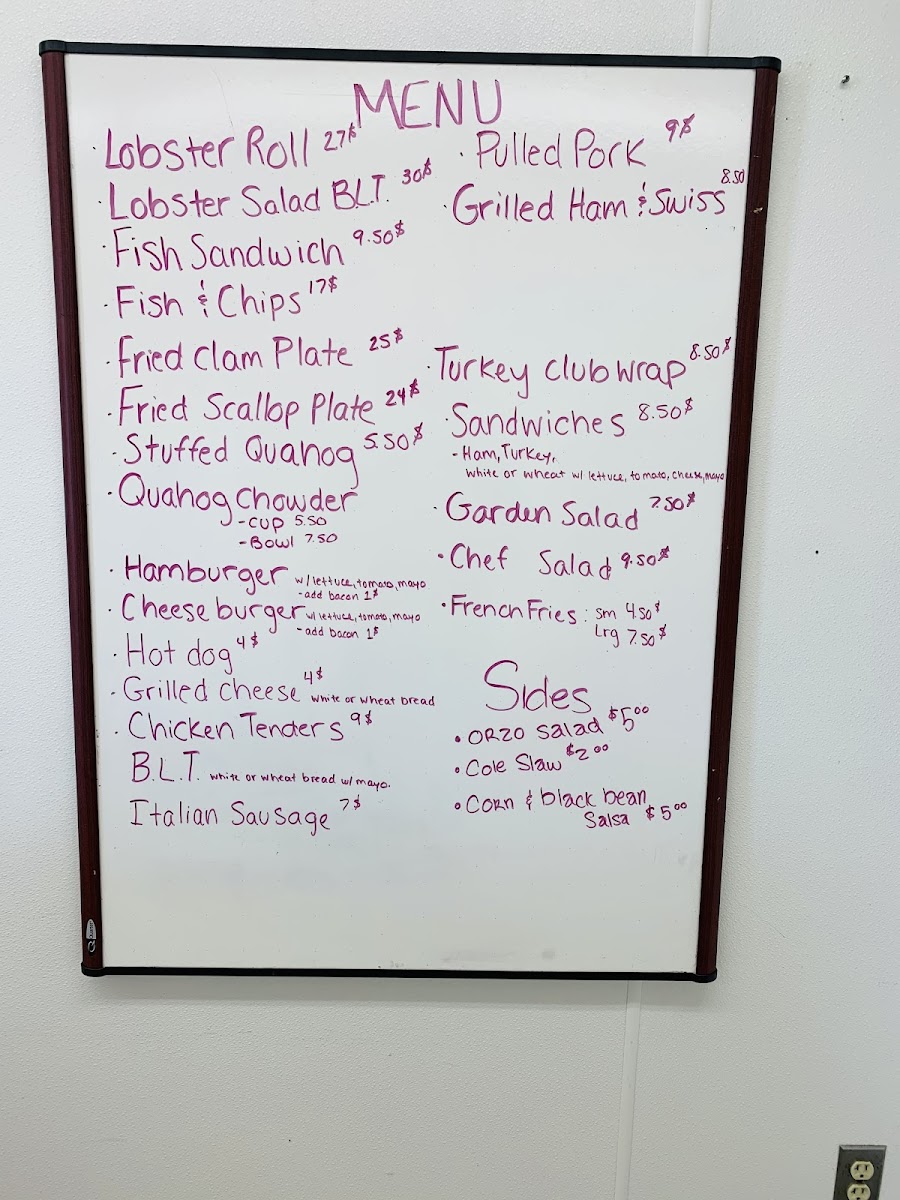 MENU
· Lobster Roll 27$
· Lobster Salad B.L.T. 30$
· Fish Sandwich 9.50$
· Fish & Chips 17$
· Fried Clam Plate 25$
· Fried Scallop Plate 24$
· Stuffed Quahog 5.50$
· Quahog chowder
- Cup 5.50
- Bowl 7.50
· Hamburger w/ lettuce, tomato, mayo
- add bacon 1$
· Cheeseburger w/ lettuce, tomato, mayo
- add bacon 1$
· Hot dog 4$
· Grilled cheese 4$ white or wheat bread
· Chicken Tenders 9$
B.L.T. white or wheat bread w/ mayo.
Italian Sausage 7$
· Pulled Pork 9$
· Grilled Ham & Swiss 8.50
· Turkey club wrap 8.50$
· Sandwiches 8.50$
- Ham, Turkey,
white or wheat w/ lettuce, tomato, cheese, mayo
· Garden Salad 7.50$
· Chef Salad 9.50$
· French Fries: Sm 4.50$
Lrg 7.50$
Sides
• ORZO Salad $5.00
• Cole Slaw $2.00
• Corn & black bean
Salsa $5.00
Quartet